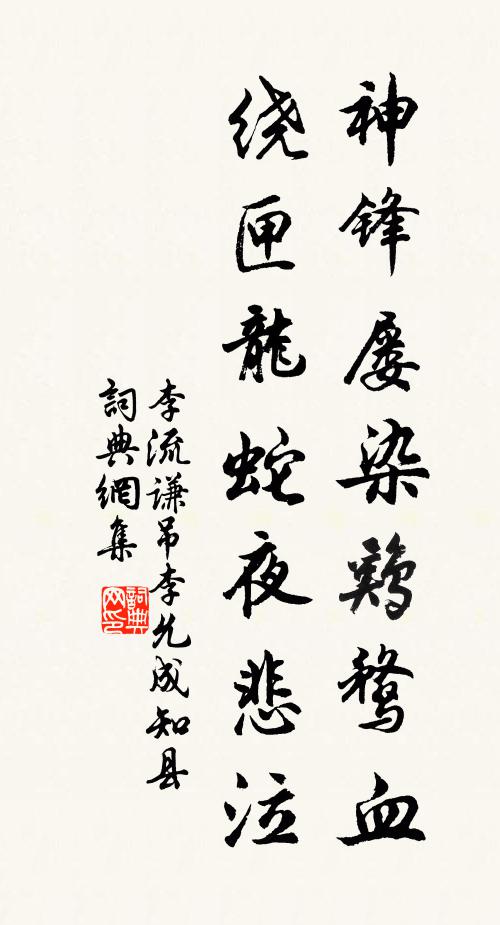 神锋屡染鷄鶩血
绕匣龍蛇夜悲泣
李流谦吊李允成知县
詞典網集
詞典网印